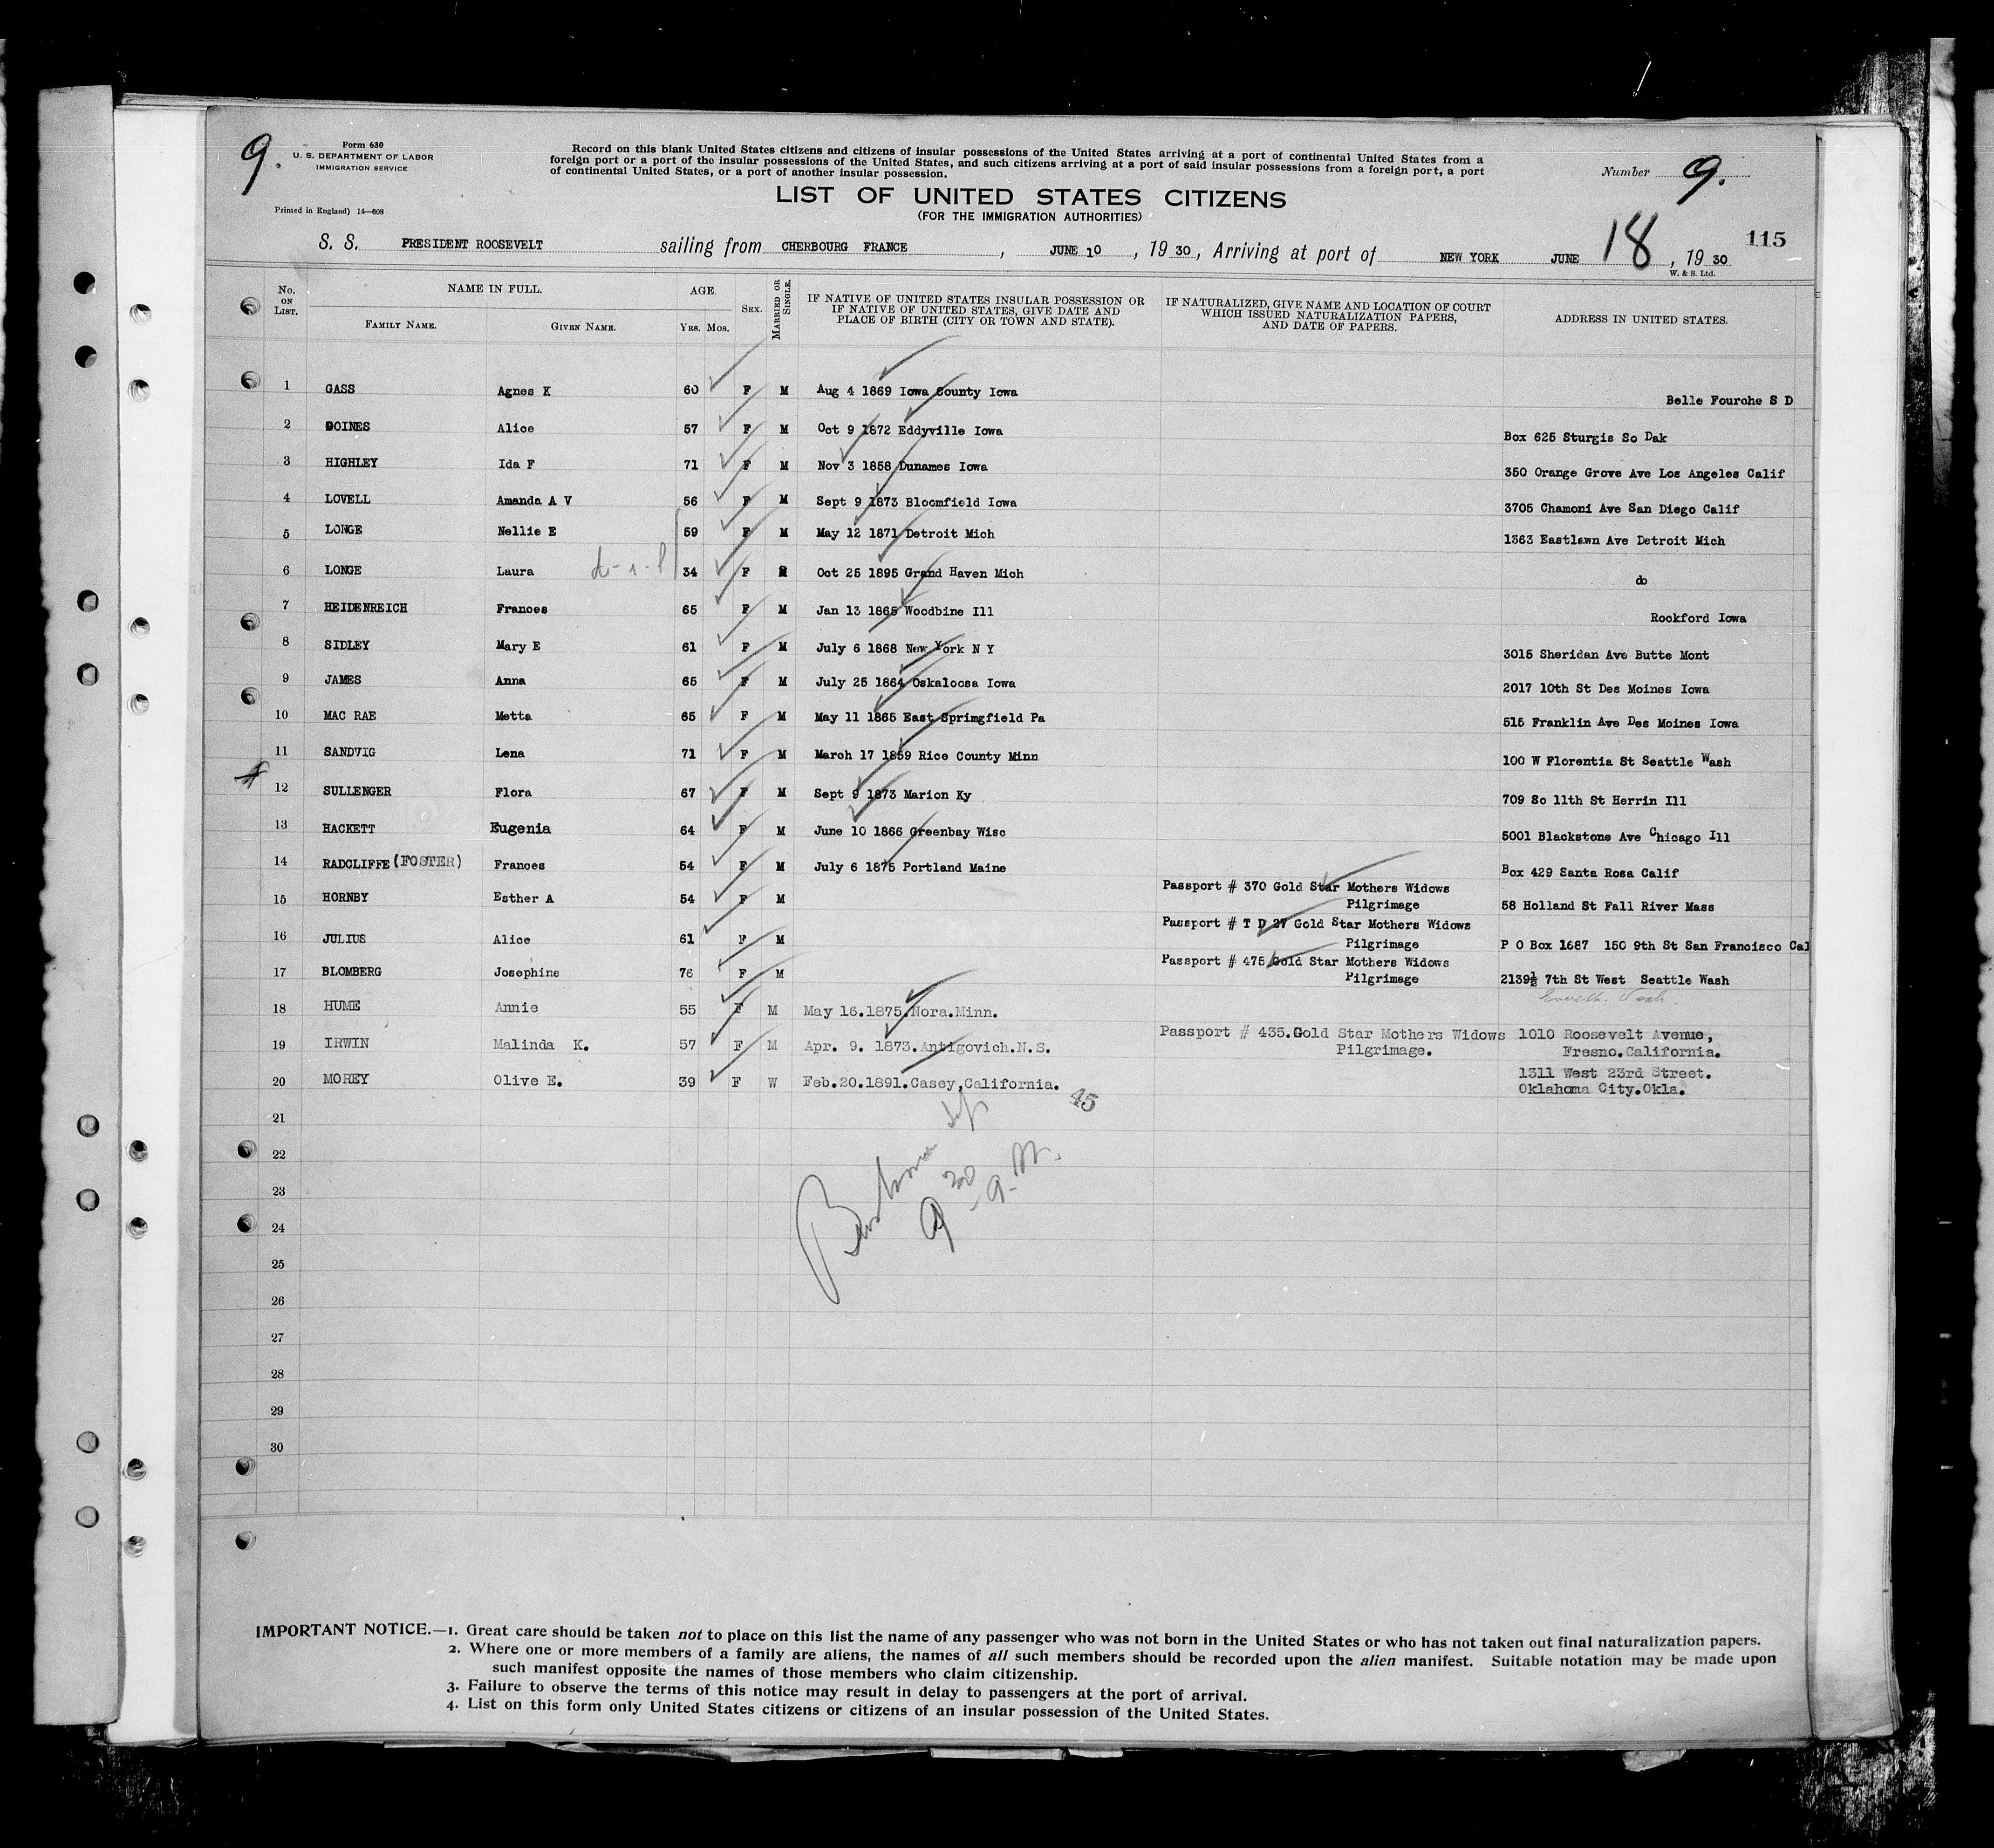 9.
Form 630
U. S. DEPARTMENT OF LABOR
IMMIGRATION SERVICE
Printed in England) 14—608
Record on this blank United States citizens and citizens of insular possessions of the United States arriving at a port of continental United States from a
foreign port or a port of the insular possessions of the United States, and such citizens arriving at a port of said insular possessions from a foreign port, a port
of continental United States, or a port of another insular possession.
LIST OF UNITED STATES CITIZENS
(FOR THE IMMIGRATION AUTHORITIES)
Number 9.
115
S. S. PRESIDENT ROOSEVELT sailing from CHERBOURG FRANCE , JUNE 10 , 19 30 , Arriving at port of NEW YORK JUNE 18 , 19 30
W. & S. Ltd.
No. ON LIST. NAME IN FULL. FAMILY NAME. GIVEN NAME. AGE. YRS. MOS. SEX. MARRIED OR SINGLE. IF NATIVE OF UNITED STATES INSULAR POSSESSION OR IF NATIVE OF UNITED STATES, GIVE DATE AND PLACE OF BIRTH (CITY OR TOWN AND STATE). IF NATURALIZED, GIVE NAME AND LOCATION OF COURT WHICH ISSUED NATURALIZATION PAPERS, AND DATE OF PAPERS. ADDRESS IN UNITED STATES.
1 GASS Agnes K 60 F M Aug 4 1869 Iowa County Iowa Belle Fourche S D
2 DOINES Alice 57 F M Oct 9 1872 Eddyville Iowa Box 625 Sturgis So Dak
3 HIGHLEY Ida F 71 F M Nov 3 1858 Dunames Iowa 350 Orange Grove Ave Los Angeles Calif
4 LOVELL Amanda A V 56 F M Sept 9 1873 Bloomfield Iowa 3705 Chamoni Ave San Diego Calif
5 LONGE Nellie E 59 F M May 12 1871 Detroit Mich 1363 Eastlawn Ave Detroit Mich
6 LONGE Laura 34 F Oct 25 1895 Grand Haven Mich do
7 HEIDENREICH Frances 65 F M Jan 13 1865 Woodbine Ill Rockford Iowa
8 SIDLEY Mary E 61 F M July 6 1868 New York N Y 3015 Sheridan Ave Butte Mont
9 JAMES Anna 65 F M July 25 1864 Oskaloosa Iowa 2017 10th St Des Moines Iowa
10 MAC RAE Metta 65 F M May 11 1865 East Springfield Pa 515 Franklin Ave Des Moines Iowa
11 SANDVIG Lena 71 F M March 17 1859 Rice County Minn 100 W Florentia St Seattle Wash
12 SULLENGER Flora 67 F M Sept 9 1873 Marion Ky 709 So 11th St Herrin Ill
13 HACKETT Eugenia 64 F M June 10 1866 Greenbay Wisc 5001 Blackstone Ave Chicago Ill
14 RADCLIFFE (FOSTER) Frances 54 F M July 6 1875 Portland Maine Box 429 Santa Rosa Calif
15 HORNBY Esther A 54 F M Passport # 370 Gold Star Mothers Widows Pilgrimage 58 Holland St Fall River Mass
16 JULIUS Alice 61 F M Passport # T D 27 Gold Star Mothers Widows Pilgrimage P O Box 1687 150 9th St San Francisco Cal
17 BLOMBERG Josephine 76 F M Passport # 475 Gold Star Mothers Widows Pilgrimage 2139½ 7th St West Seattle Wash
18 HUME Annie 55 F M May 16.1875.Nora.Minn. Everett. Wash.
19 IRWIN Malinda K. 57 F M Apr. 9. 1873.Antigovich.N.S. Passport # 435.Gold Star Mothers Widows Pilgrimage. 1010 Roosevelt Avenue, Fresno.California.
20 MOREY Olive E. 39 F W Feb.20.1891.Casey,California. 1311 West 23rd Street. Oklahoma City.Okla.
45
21
22
23
9 30 a. m.
24
25
26
27
28
29
30
IMPORTANT NOTICE.—1. Great care should be taken not to place on this list the name of any passenger who was not born in the United States or who has not taken out final naturalization papers.
2. Where one or more members of a family are aliens, the names of all such members should be recorded upon the alien manifest. Suitable notation may be made upon
such manifest opposite the names of those members who claim citizenship.
3. Failure to observe the terms of this notice may result in delay to passengers at the port of arrival.
4. List on this form only United States citizens or citizens of an insular possession of the United States.